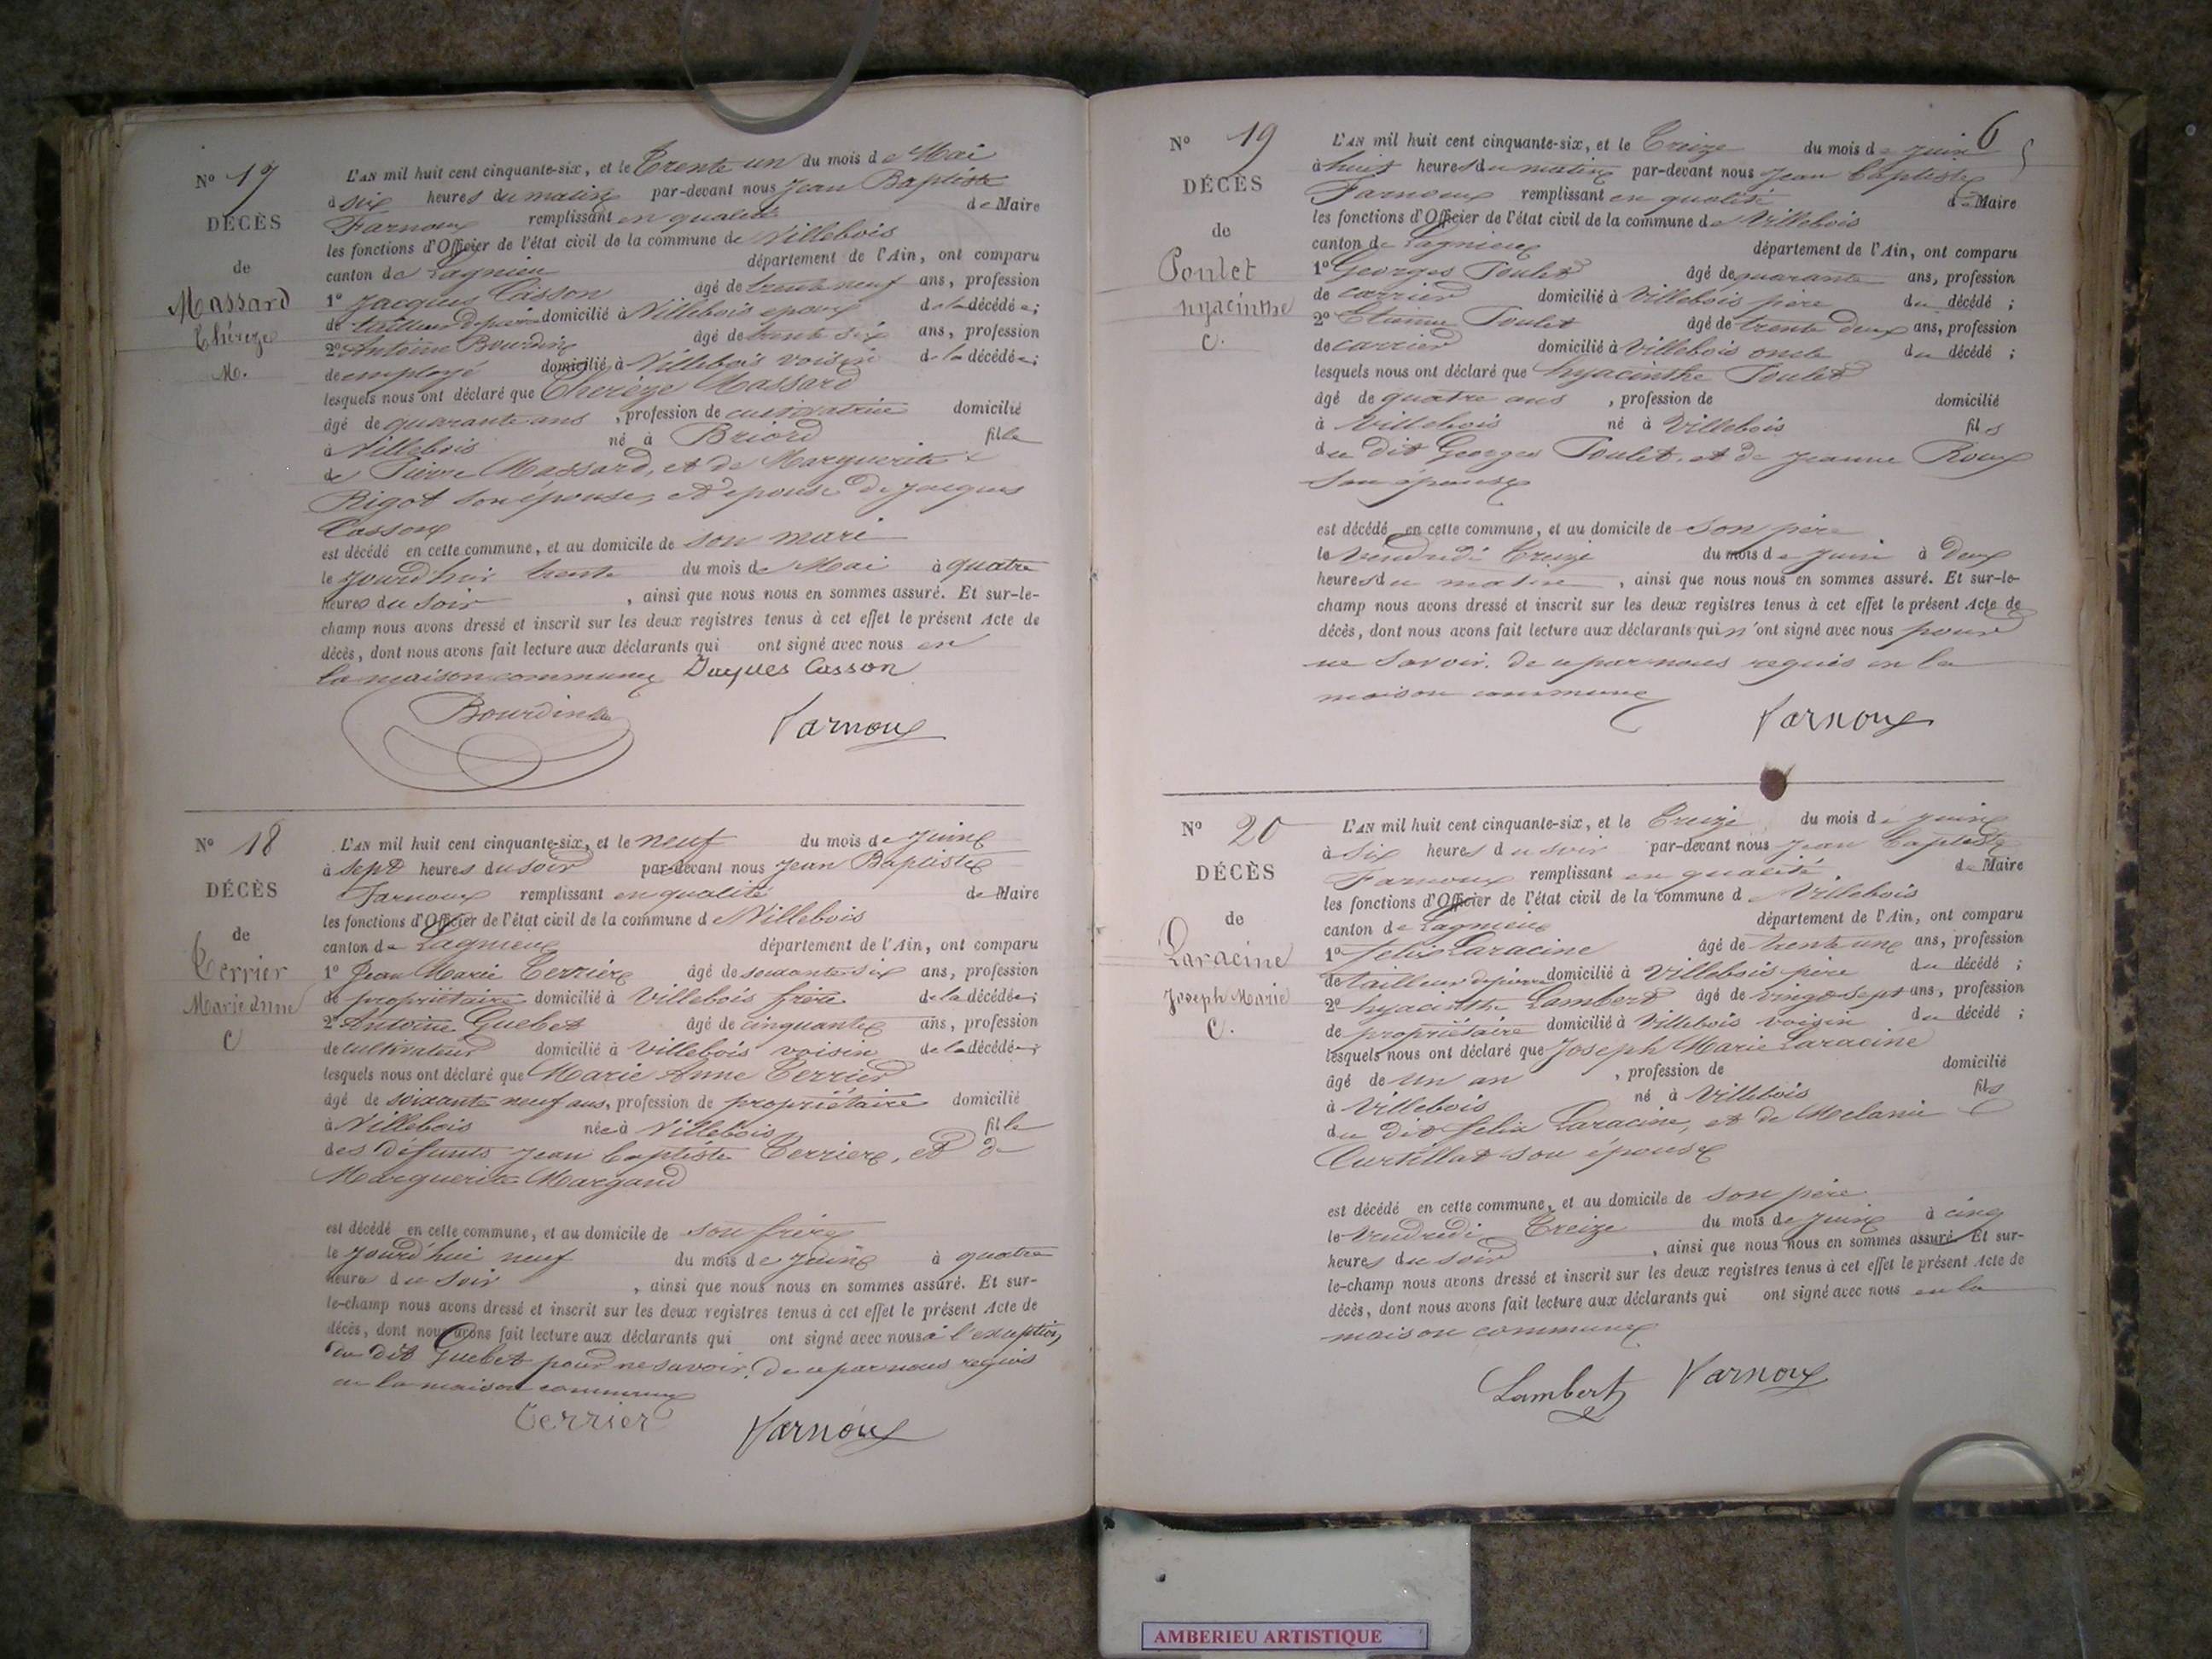 Nº 17
DÉCÈS
de
Massard
Thérèze
M.
L'AN mil huit cent cinquante-six, et le Trente un du mois de Mai
à six heures du matin par-devant nous Jean Baptiste
Farnoux remplissant en qualité de Maire
les fonctions d'Officier de l'état civil de la commune de Villebois
canton de Lagnieu département de l'Ain, ont comparu
1º Jacques Casson âgé de trente neuf ans, profession
de tailleur de pierre domicilié à Villebois epoux de la décédée;
2º Antoine Bourdin âgé de trente six ans, profession
de employé domicilié à Villebois voisin de la décédée;
lesquels nous ont déclaré que Thérèze Massard
âgé de quarante ans, profession de cultivatrice domicilié
à Villebois né à Briord fille
de Pierre Massard, et de Marguerite
Rigot son épouse, et épouse de Jacques
Casson
est décédé en cette commune, et au domicile de son mari
le jourd'hui trente du mois de Mai à quatre
heures du soir, ainsi que nous nous en sommes assuré. Et sur-le-
champ nous avons dressé et inscrit sur les deux registres tenus à cet effet le présent Acte de
décès, dont nous avons fait lecture aux déclarants qui ont signé avec nous en
la maison commune Jaques Casson
Bourdin Varnoux
Nº 18
DÉCÈS
de
Terrier
Marie anne
C
L'AN mil huit cent cinquante-six, et le neuf du mois de Juin
à sept heures du soir par-devant nous Jean Baptiste
Farnoux remplissant en qualité de Maire
les fonctions d'Officier de l'état civil de la commune de Villebois
canton de Lagnieu département de l'Ain, ont comparu
1º Jean Marie Terrier âgé de soixante six ans, profession
de propriétaire domicilié à Villebois frère de la décédée;
2º Antoine Guebet âgé de cinquante ans, profession
de cultivateur domicilié à Villebois voisin de la décédée;
lesquels nous ont déclaré que Marie Anne Terrier
âgé de soixante neuf ans, profession de propriétaire domicilié
à Villebois née à Villebois fille
des défunts Jean Baptiste Terrier, et de
Marguerite Margand
est décédé en cette commune, et au domicile de son frère
le jourd'hui neuf du mois de Juin à quatre
heures du soir, ainsi que nous nous en sommes assuré. Et sur-
le-champ nous avons dressé et inscrit sur les deux registres tenus à cet effet le présent Acte de
décès, dont nous avons fait lecture aux déclarants qui ont signé avec nous à l'exception
du dit Guebet pour ne savoir. De ce par nous requis
en la maison commune
Terrier Varnoux
6
Nº 19
DÉCÈS
de
Poulet
hyacinthe
C.
L'AN mil huit cent cinquante-six, et le Treize du mois de Juin
à huit heures du matin par-devant nous Jean Baptiste
Farnoux remplissant en qualité de Maire
les fonctions d'Officier de l'état civil de la commune de Villebois
canton de Lagnieu département de l'Ain, ont comparu
1º Georges Poulet âgé de quarante ans, profession
de carrier domicilié à Villebois père du décédé;
2º Etienne Poulet âgé de trente deux ans, profession
de carrier domicilié à Villebois oncle du décédé;
lesquels nous ont déclaré que hyacinthe Poulet
âgé de quatre ans, profession de domicilié
à Villebois né à Villebois fils
du dit Georges Poulet, et de Jeanne Roux
son épouse
est décédé en cette commune, et au domicile de son père
le Vendredi Treize du mois de Juin à deux
heures du matin, ainsi que nous nous en sommes assuré. Et sur-le-
champ nous avons dressé et inscrit sur les deux registres tenus à cet effet le présent Acte de
décès, dont nous avons fait lecture aux déclarants qui n'ont signé avec nous pour
ne savoir. de ce par nous requis en la
maison commune
Varnoux
Nº 20
DÉCÈS
de
Laracine
Joseph Marie
C.
L'AN mil huit cent cinquante-six, et le Treize du mois de Juin
à six heures du soir par-devant nous Jean Baptiste
Farnoux remplissant en qualité de Maire
les fonctions d'Officier de l'état civil de la commune d Villebois
canton de Lagnieu département de l'Ain, ont comparu
1º felix Laracine âgé de trente un ans, profession
de tailleur de pierre domicilié à Villebois père du décédé;
2º hyacinthe Lambert âgé de vingt sept ans, profession
de propriétaire domicilié à Villebois voisin du décédé;
lesquels nous ont déclaré que Joseph Marie Laracine
âgé de un an, profession de domicilié
à Villebois né à Villebois fils
du dit felix Laracine, et de Melanie
Curtillat son épouse
est décédé en cette commune, et au domicile de son père
le Vendredi Treize du mois de Juin à cinq
heures du soir, ainsi que nous nous en sommes assuré. Et sur-
le-champ nous avons dressé et inscrit sur les deux registres tenus à cet effet le présent Acte de
décès, dont nous avons fait lecture aux déclarants qui ont signé avec nous en la
maison commune
Lambert Varnoux
AMBERIEU ARTISTIQUE